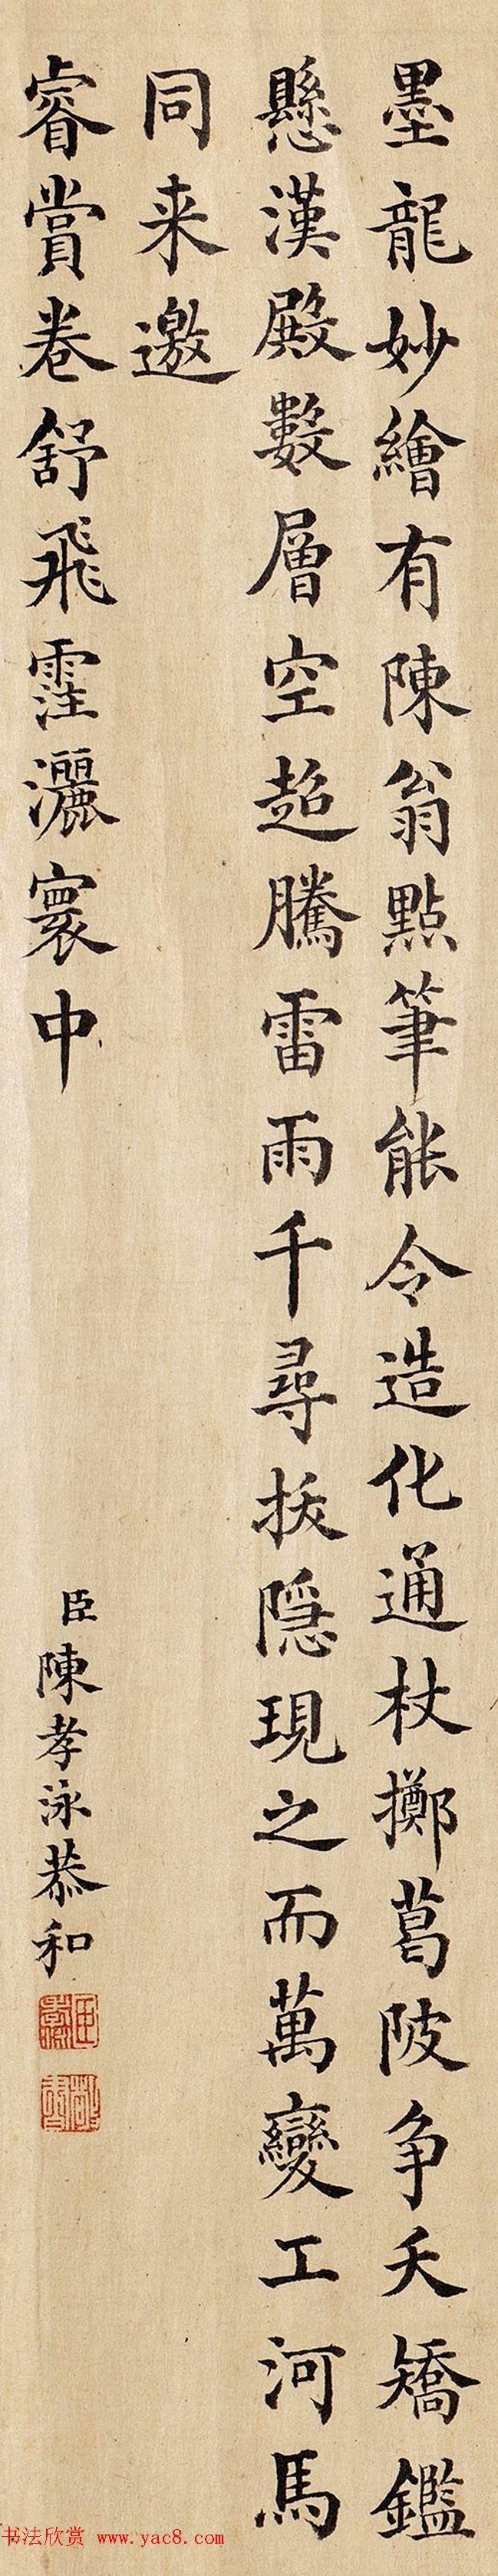 墨龍妙繪有陳翁點筆能令造化通杖擲葛陂争夭矯鑑
懸漢殿數層空超騰雷雨千尋拔隱現之而萬變工河馬
同来邀
睿賞卷舒飛霔灑寰中
臣陳孝泳恭和
臣
孝
书法欣赏 www.yac8.com